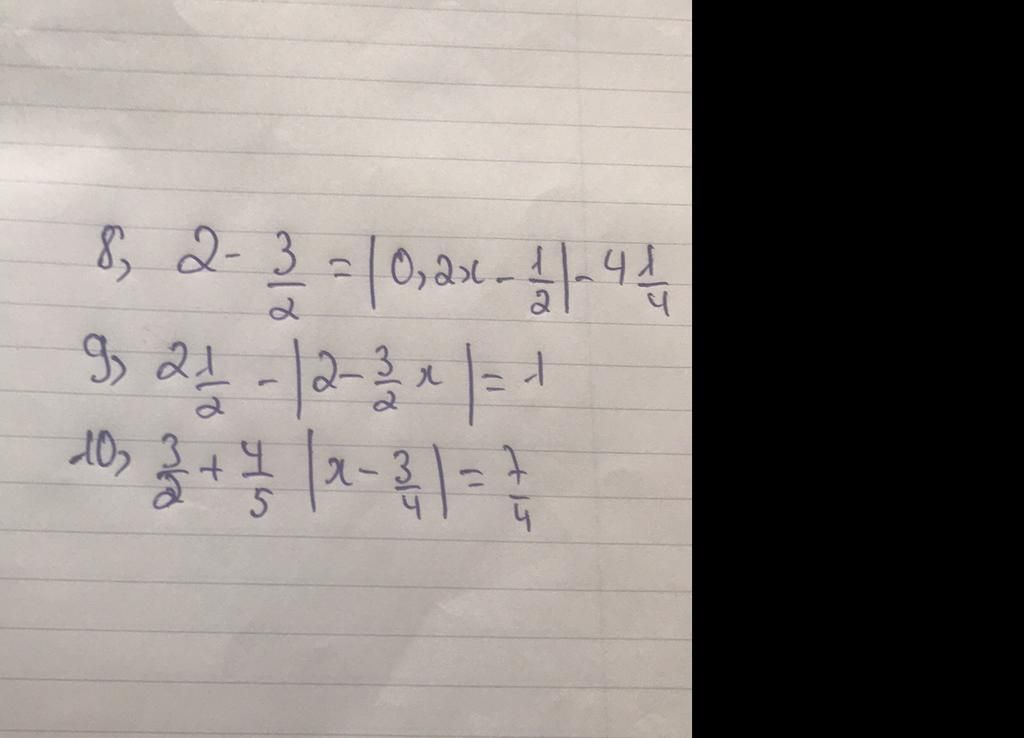 8, 2 - 3/2 = |0,2x - 1/2| - 4 1/4
9, 2 1/2 - |2 - 3/2 x| = 1
10, 3/2 + 4/5 |x - 3/4| = 7/4